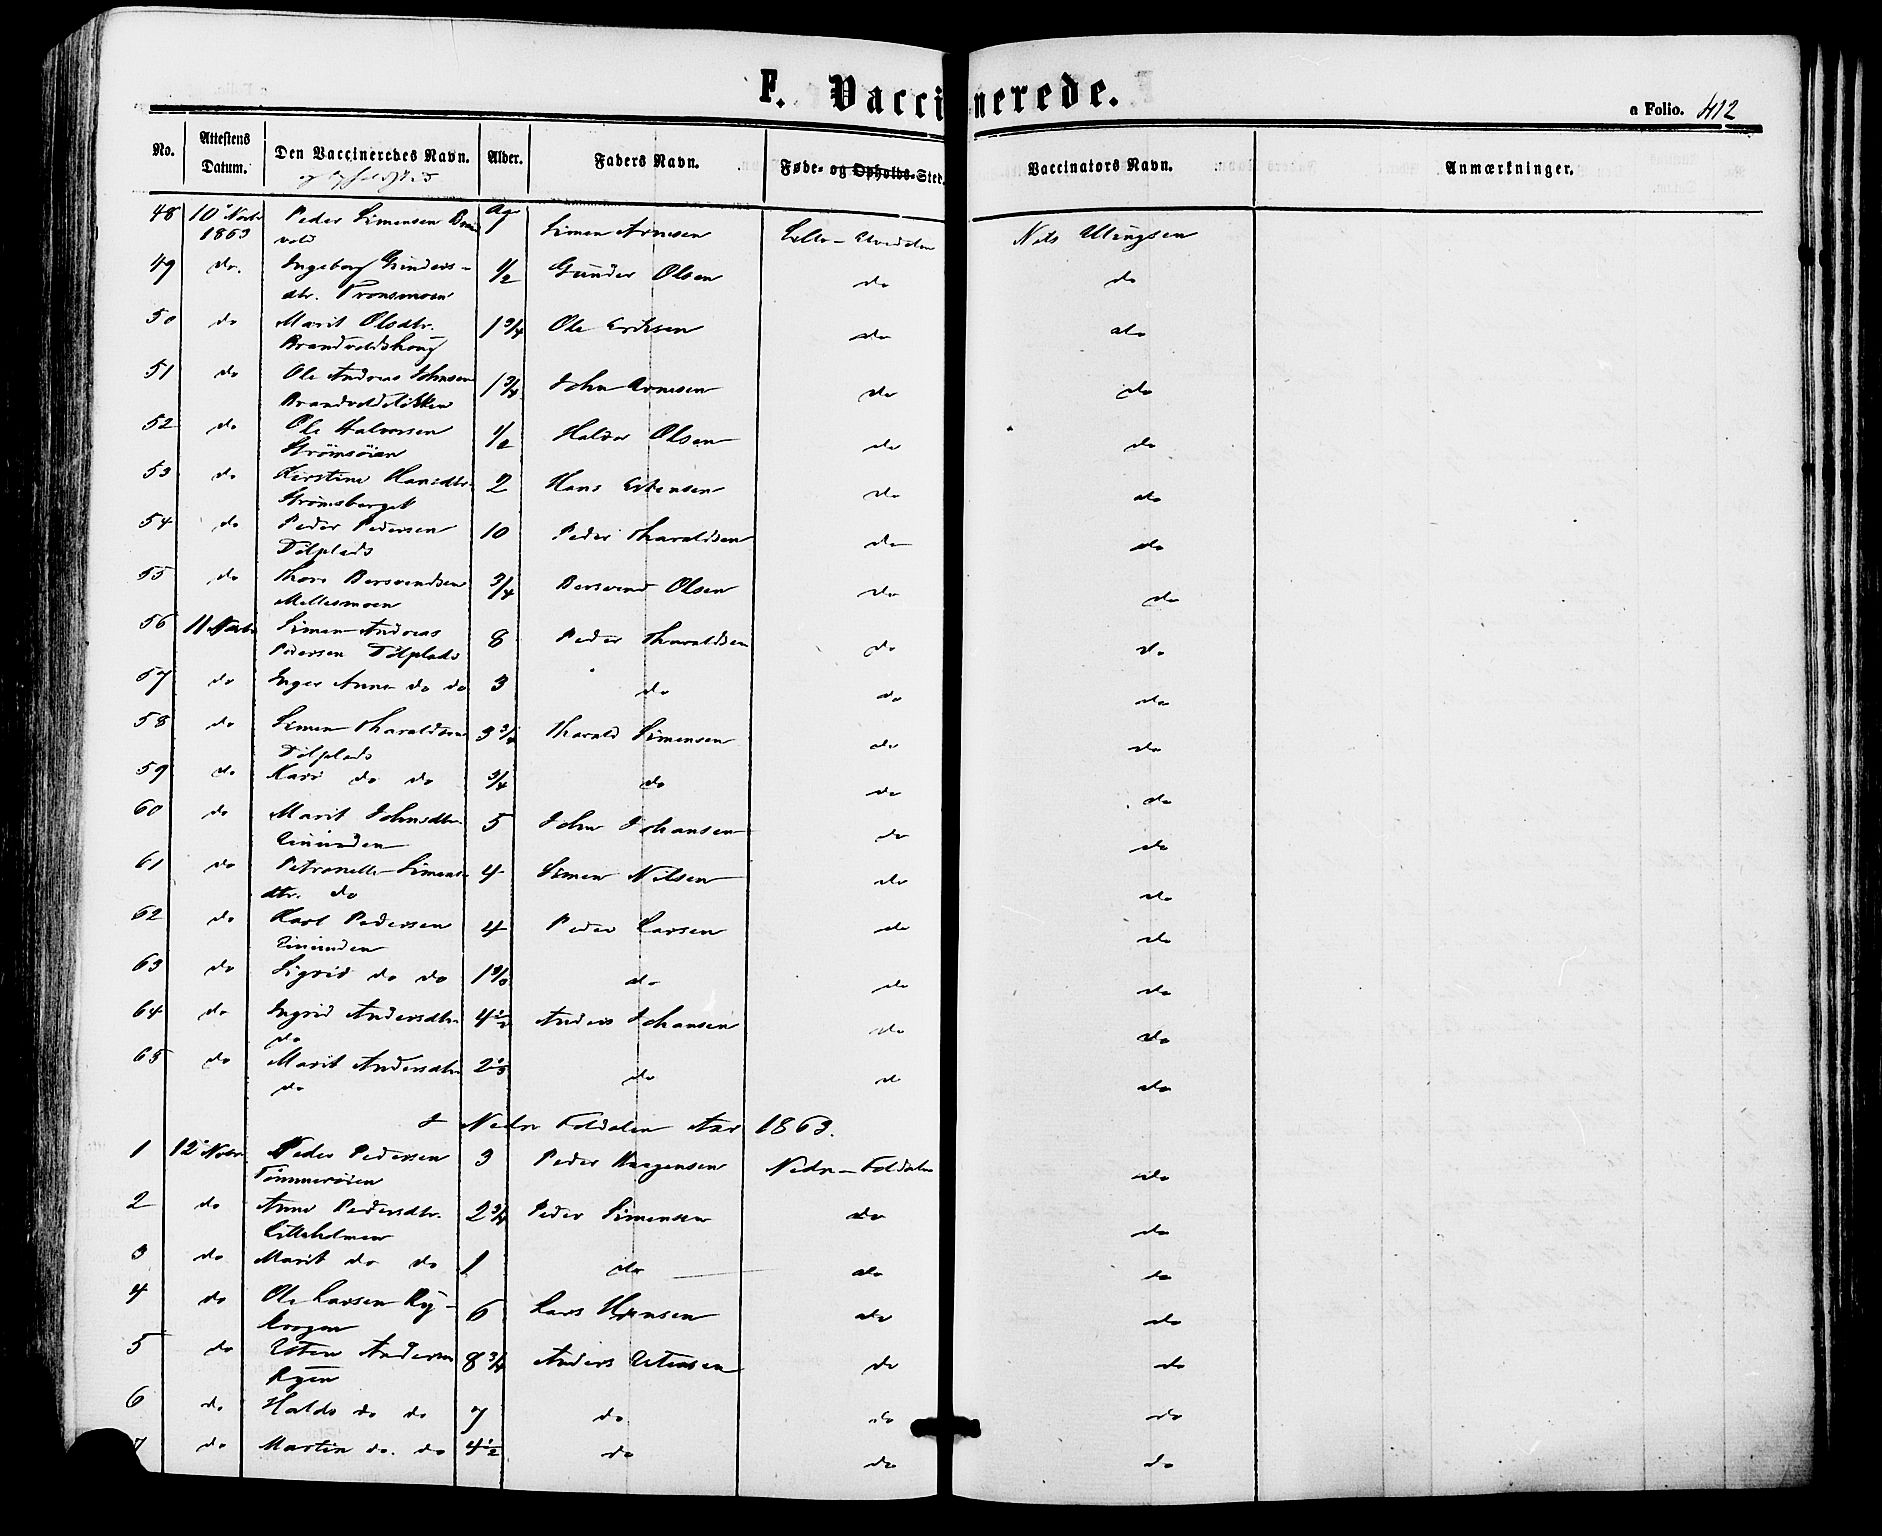 F. Vaccinerede.
a Folio. 412
No. Attestens Datum. Den Vaccineredes Navn. Alder. Faders Navn. Føde- og Opholds-Sted. Vaccinators Navn. Anmærkninger.
og opholdssted
48 10 Novbr Peder Simensen 7 Simen Arnesen Lille-Elvedalen Nils
1863 vold
49 do. Ingeborg Gunders- 1/2 Gunder Olsen do do
dtr. Tronsmoen
50 do Marit Olsdtr. 1 3/4 Ole Eriksen do do
Brandvoldshoug
51 do Ole Andreas Johnsen 1 3/4 John Arnesen do do
Brandvoldsløkken
52 do Ole Halvorsen 1/2 Halvor Olsen do do
Strømsøien
53 do Kirstine Hansdtr. 2 Hans Estensen do do
Strømsberget
54 do Peder Pedersen 10 Peder Tharaldsen do do
55 do Thore Bersvendsen 3/4 Bersvend Olsen do do
Mellesmoen
56 11 Novbr Simen Andreas 8 Peder Tharaldsen do do
Pedersen
57 do Inger Anne do do 3 do do do
58 do Simen Tharaldsen 3 3/4 Tharald Simensen do do
59 do Kari do do 3/4 do do do
60 do Marit Johnsdtr. 5 John Johansen do do
61 do Petronelle Simens- 4 Simen Nilsen do do
dtr. do
62 do Karl Pedersen 4 Peder Larsen do do
63 do Sigrid do do do do do
64 do Ingrid Andersdtr 4 1/2 Anders Johansen do do
do
65 do Marit Andersdtr do do do
do
I Nedre Foldalen Aar 1863.
1 12 Novbr. Peder Pedersen 3 Peder Haagensen Nedre-Foldalen do
Tømmerøien
2 do Anne Pedersdtr. 2 3/4 Peder Simensen do do
Lilleholmen
3 do Marit do do 1 do do do
4 do Ole Larsen Ry- 6 Lars Hansen do do
5 do Esten Andersen 8 3/4 Anders Estensen do do
Ryen
6 do Haldo do do 7 do do do
7 do Martin do. do 4 1/2 do do do